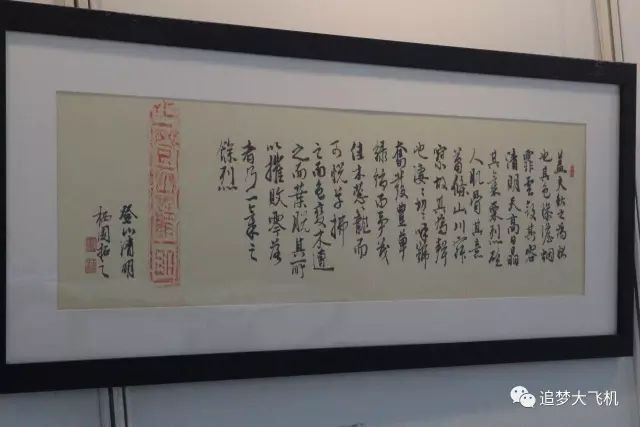 蓋夫秋之為狀
也其色慘澹烟
霏雲斂其容
清明天高日晶
其氣栗烈砭
人肌骨其意
蕭條山川寂
寥故其為聲
也淒ミ切ミ呼號
奮發豐草
綠縟而爭茂
佳木蔥蘢而
可悅草拂
之而色變木遭
之而葉脫其所
以摧敗零落
者乃一氣之
餘烈
清明
追梦大飞机